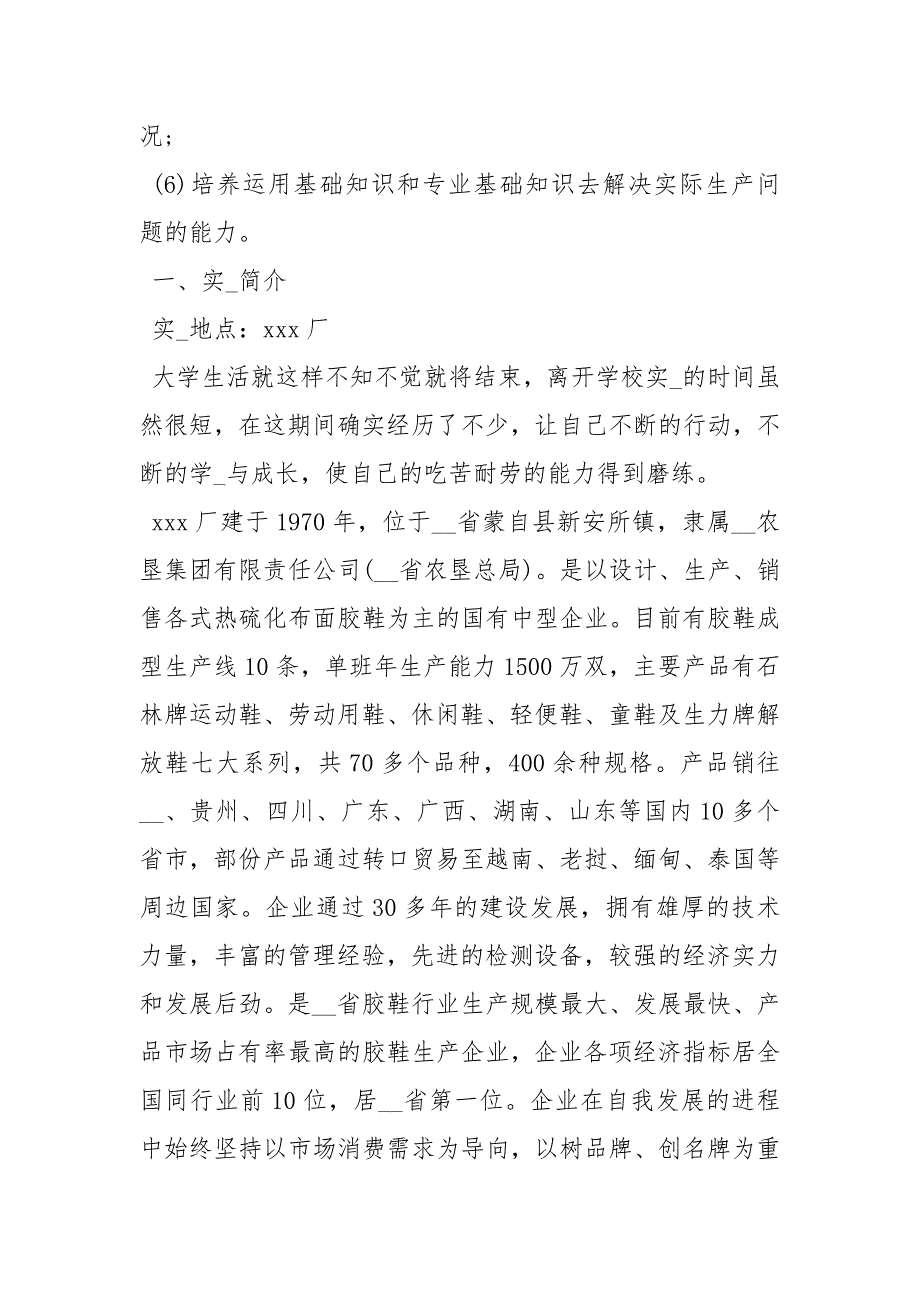 况；
(6)培养运用基础知识和专业基础知识去解决实际生产问
题的能力。
一、实_简介
实_地点：xxx 厂
大学生活就这样不知不觉就将结束，离开学校实_的时间虽
然很短，在这期间确实经历了不少，让自己不断的行动，不
断的学_与成长，使自己的吃苦耐劳的能力得到磨练。
xxx 厂建于 1970 年，位于__省蒙自县新安所镇，隶属__农
垦集团有限责任公司(__省农垦总局)。是以设计、生产、销
售各式热硫化布面胶鞋为主的国有中型企业。目前有胶鞋成
型生产线 10 条，单班年生产能力 1500 万双，主要产品有石
林牌运动鞋、劳动用鞋、休闲鞋、轻便鞋、童鞋及生力牌解
放鞋七大系列，共 70 多个品种，400 余种规格。产品销往
__、贵州、四川、广东、广西、湖南、山东等国内 10 多个
省市，部份产品通过转口贸易至越南、老挝、缅甸、泰国等
周边国家。企业通过 30 多年的建设发展，拥有雄厚的技术
力量，丰富的管理经验，先进的检测设备，较强的经济实力
和发展后劲。是__省胶鞋行业生产规模最大、发展最快、产
品市场占有率最高的胶鞋生产企业，企业各项经济指标居全
国同行业前 10 位，居__省第一位。企业在自我发展的进程
中始终坚持以市场消费需求为导向，以树品牌、创名牌为重